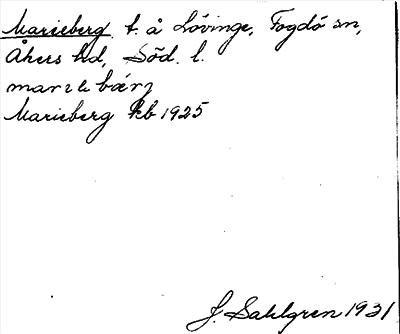 Marieberg t. å Lövinge, Fogdö sn,
Åkers hd, Söd. l.
Marieberg kb 1925
J. Sahlgren 1931